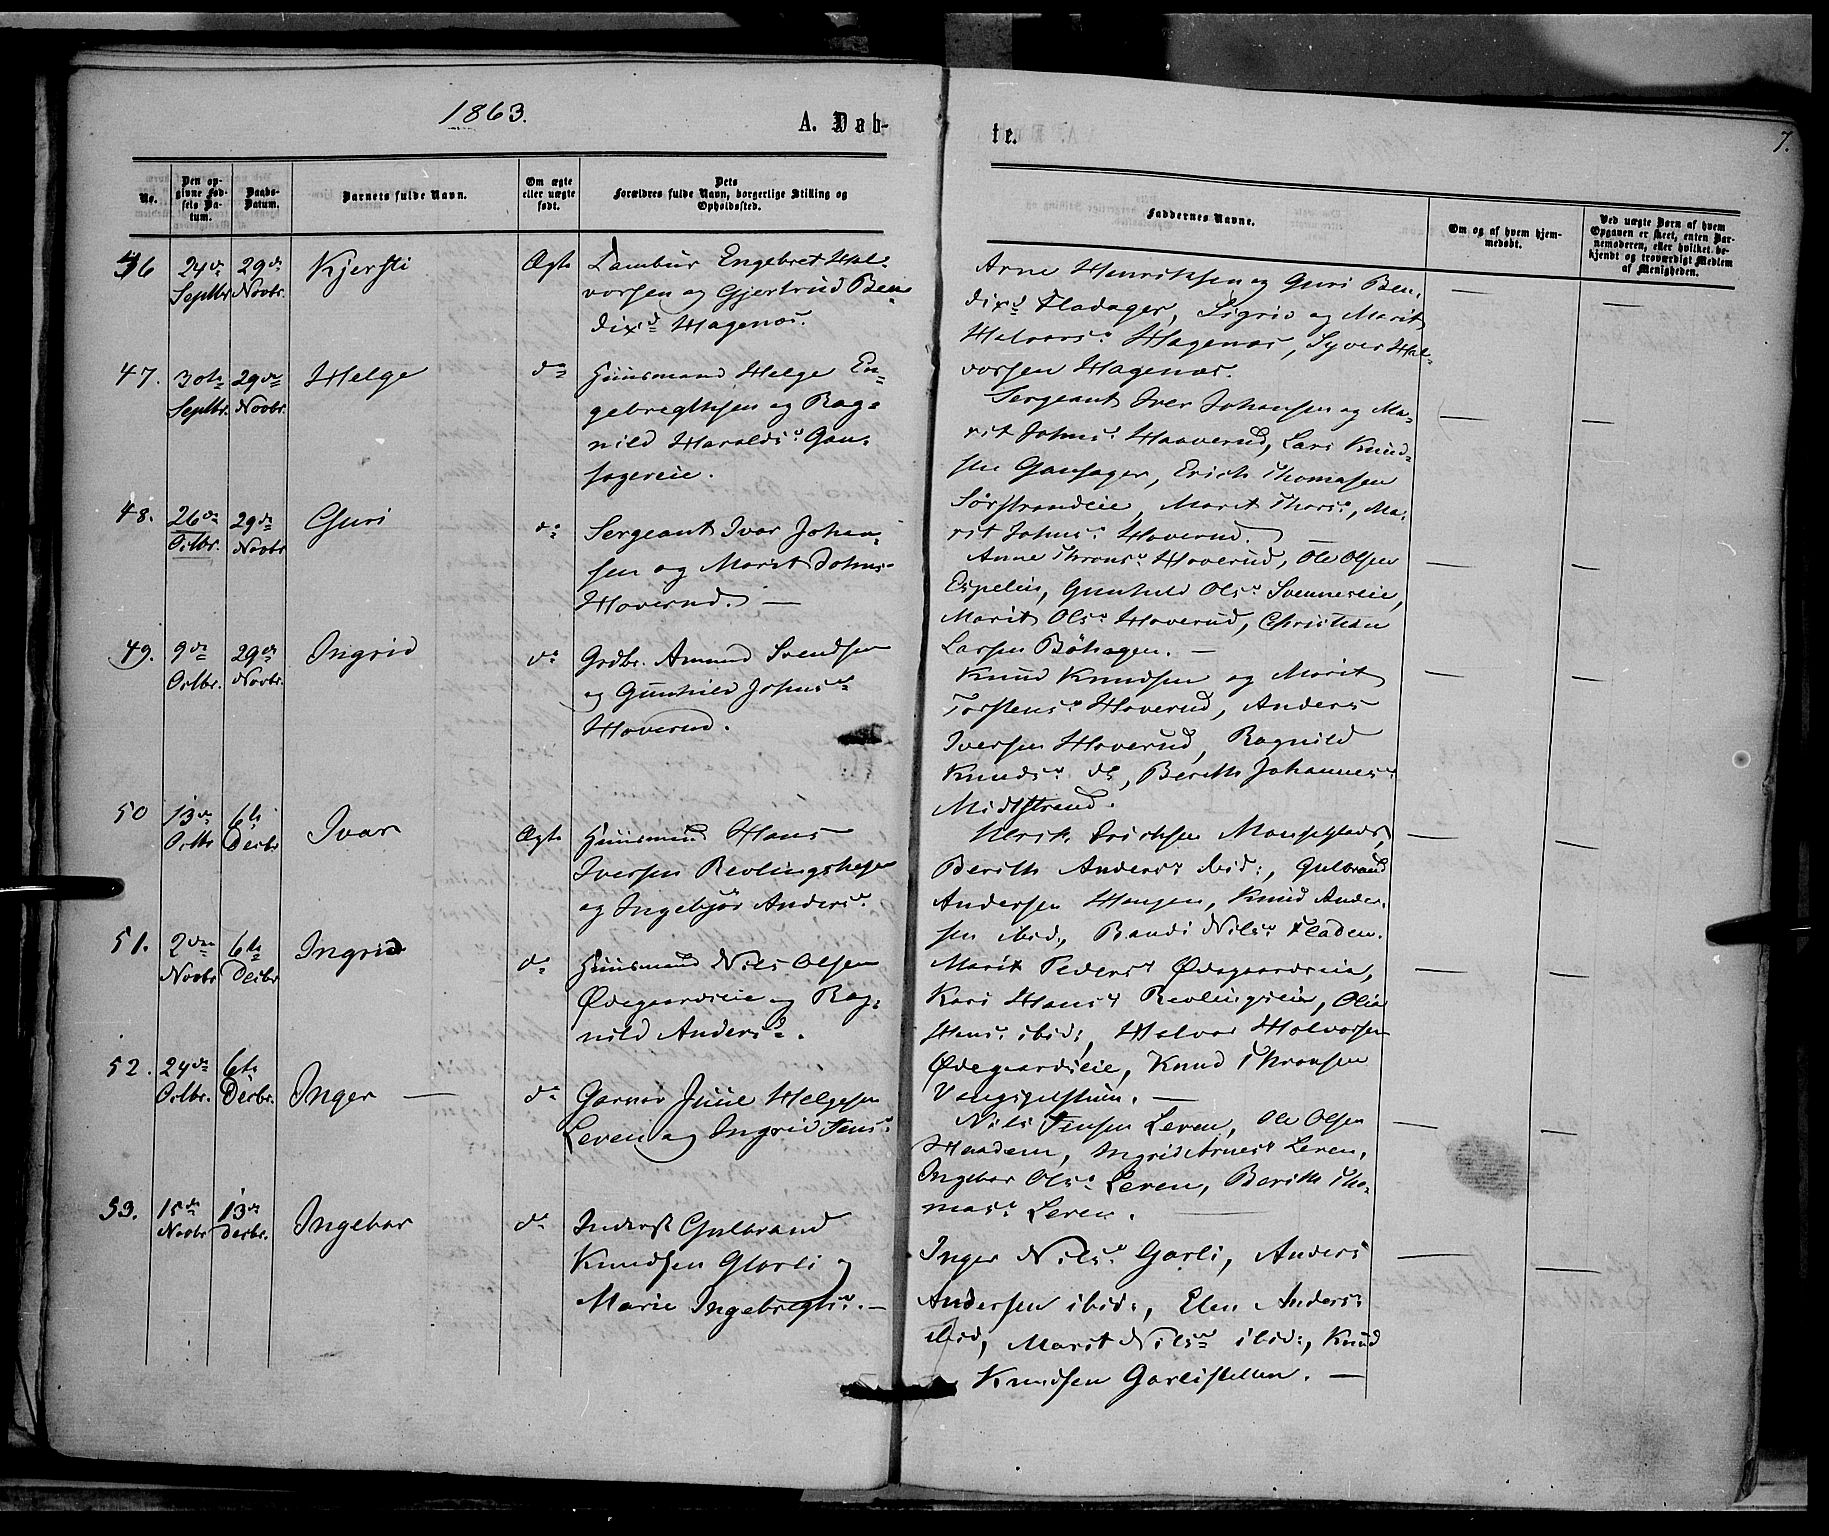 1863.
A. Døb-
te.
7.
No.
Den op-
givne Fød-
sels Da-
tum.
Daabs-
Datum.
Barnets fulde Navn.
Om ægte
eller uægte
født.
Dets
Forældres fulde Navn, borgerlige Stilling og
Opholdssted.
Faddernes Navne.
Om og af hvem hjem-
medøbt.
Ved uægte Børn af hvem
Opgaven er skeet, enten Bar-
nemoderen, eller hvilket be-
kjendt og troværdigt Medlem
af Menigheden.
46 24de Septbr 29de Novbr. Kjersti Ægte
Engebret Hal-
vorsen og Gjertrud Ben-
dixd Hagenæs.
Arne Henriksen og Guri Ben-
dixd Fladager, Sigrid og Marit
Halvorsd Hagenæs, Syver Hal-
vorsen Hagenæs.
47. 30te Septbr. 29de Novbr. Helge do
Huusmand Helge En-
gebregtsen og Rag-
nild Haraldsd Gan-
sagereie.
Sergeant Iver Johansen og Ma-
rit Johnsd Haaverud, Lars Knud-
sen Gansager, Erich Thomasen
Sørstrandeie, Marit Thorsd, Ma-
rit Johnsd Hoverud. —
48. 26de Octbr. 29de Novbr Guri do
Sergeant Ivar Johan-
sen og Marit Johns-
Hoverud. —
Anne Thronsd Hoverud, Ole Olsen
Espelien, Gunhild Olsd Svenneseie,
Marit Olsd Hoverud, Christian
Larsen Bøhagen. —
49. 9de Octbr. 29de Novbr. Ingrid do
Grdbr. Amund Svendsen
og Gunhild Johnsd
Hoverud.
Knud Knudsen og Marit
Torstensd Hoverud, Anders
Iversen Hoverud, Ragnild
Knudsd do, Berith Johannesd
Midtstrand.
50 13de Octbr 6te Decbr Ivar Ægte
Huusmand Hans
Iversen Revlingshagen
og Ingebjør Andersd.
Ulrik Erichsen
Berith Andersd ibid:, Gulbrand
Andersen Haugen, Knud Ander-
sen ibid:, Randi Nilsd Fladen.
51. 2den Novbr 6te Decbr Ingrid do
Huusmand Nils Olsen
Ødegaardseie og Rag-
nild Andersd.
Marit Pedersd Ødegaardseie,
Kari Hansd Revlingseie, Olia
Hansd ibid:, Halvor Halvorsen
Ødegaardseie, Knud Thronsen
52. 24de Octbr. 6te Decbr. Inger — do
Garver Juul Helgesen
Leren og Ingrid Jensd.
Nils Jensen Leren, Ole Olsen
Haadem, Ingrid Arnesd Leren,
Ingebor Olsd Leren, Berith Tho-
masd Leren. —
53. 15de Novbr 13de Decbr. Ingebor do
Inderst Gulbrand
Knudsen Garli og
Marie Ingebregtsd. —
Inger Nilsd Garli, Anders
Andersen ibid:, Elen Andersd
ibid, Marit Nilsd ibid:, Knud
Knudsen Garlistellen. —